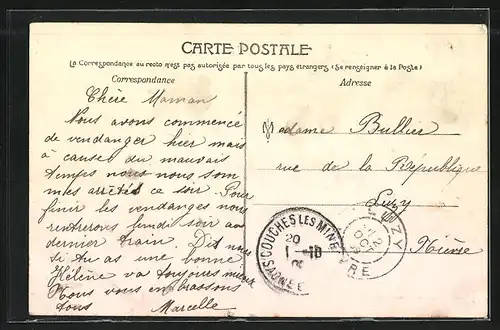 CARTE POSTALE
La Correspondance au recto n'est pas autorisée par tous les pays étrangers (Se renseigner à la Poste)
Correspondance
Chère Maman
Nous avons commencé
de vendanger hier mais
à cause du mauvais
temps nous nous som
mes arrêtés ce soir. Pour
finir les vendanges nous
rentrerons lundi soir au
dernier train. Dit nous
si tu as une bonne
Hélène va toujours mieux
Nous vous embrassons
tous Marcelle
Adresse
Madame Bullier
rue de la République
Luzy
Nièvre
COUCHES LES MINES
20
1 -10
SAONE
LUZY
NIEVRE